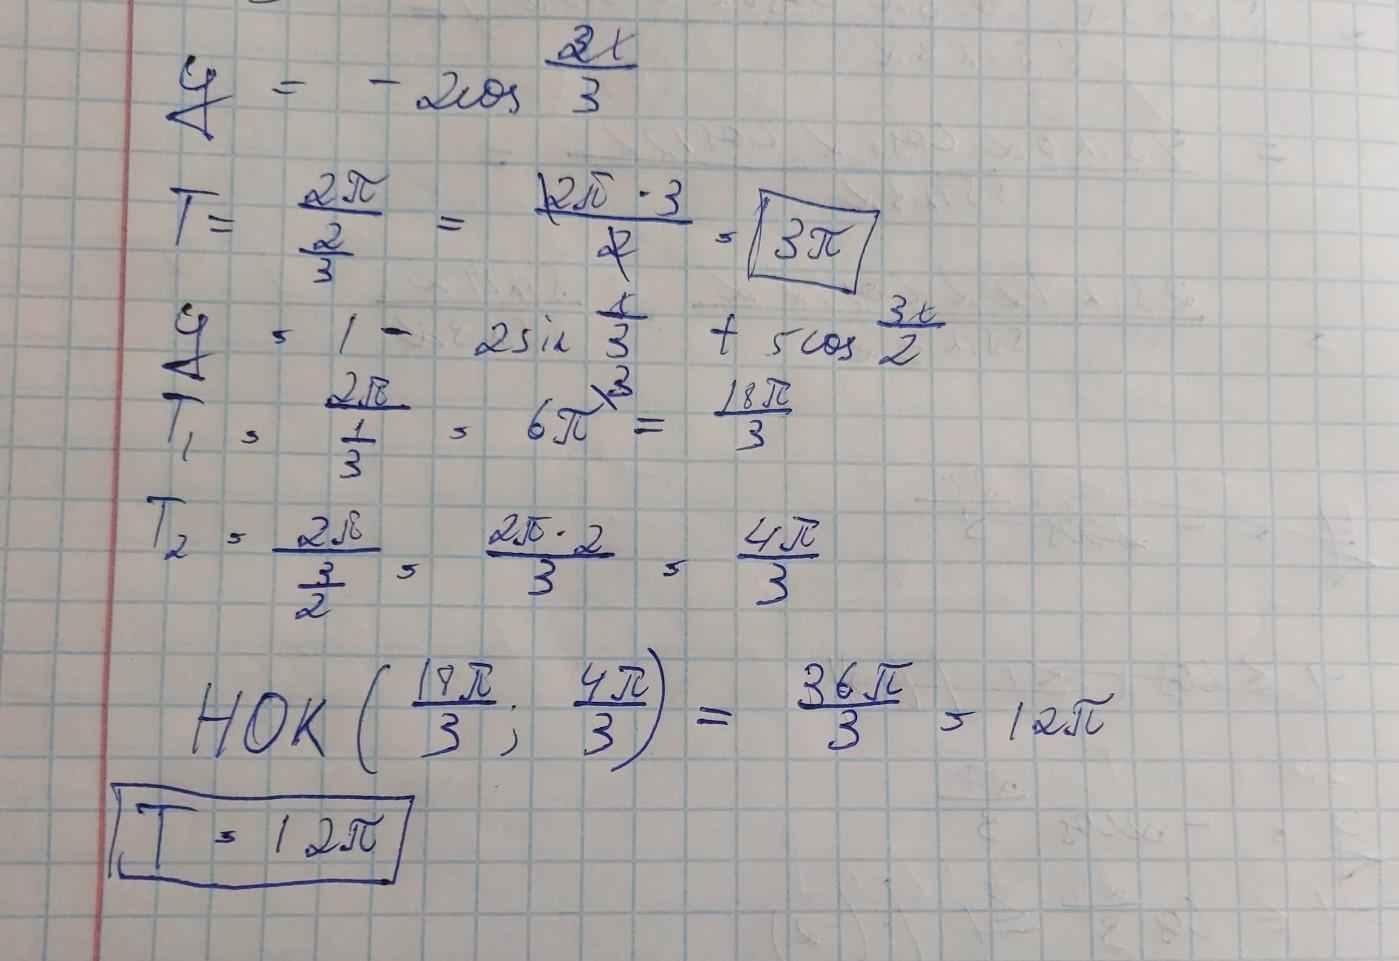 y = - 2cos 2x/3
T = 2π/(2/3) = (2π · 3)/2 = 3π
y = 1 - 2sin x/3 + 5cos 3x/2
T₁ = 2π/(1/3) = 6π\3 = 18π/3
T₂ = 2π/(3/2) = (2π · 2)/3 = 4π/3
НОК (18π/3 ; 4π/3) = 36π/3 = 12π
T = 12π